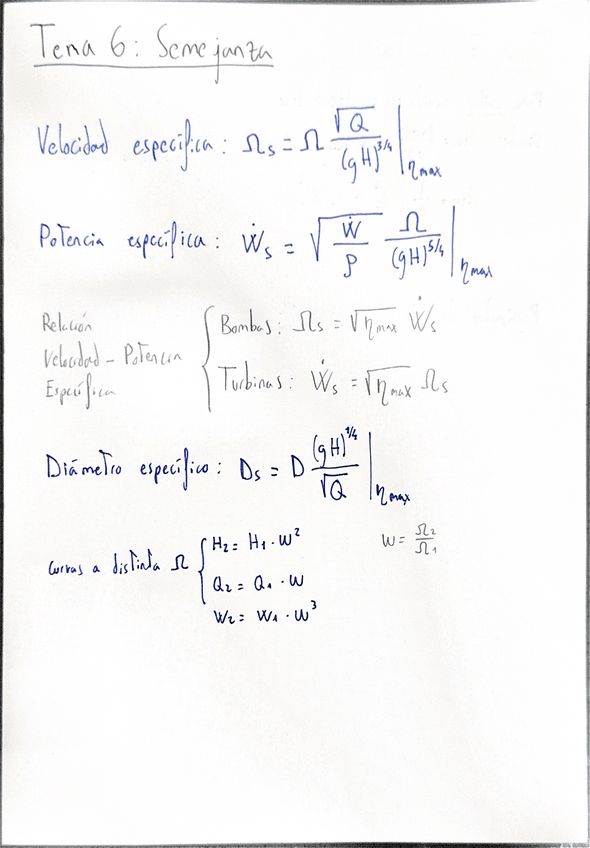 Tema 6: Semejanza
Velocidad específica: Ωs = Ω √Q / (gH)^3/4 |ηmax
Potencia específica: Ẇs = √(Ẇ/ρ) Ω / (gH)^5/4 |ηmax
Relación
Velocidad - Potencia
Específica
Bombas: Ωs = √ηmax Ẇs
Turbinas: Ẇs = √ηmax Ωs
Diámetro específico: Ds = D (gH)^1/4 / √Q |ηmax
Curvas a distinta Ω
H2 = H1 · w^2
Q2 = Q1 · w
W2 = W1 · w^3
w = Ω2/Ω1